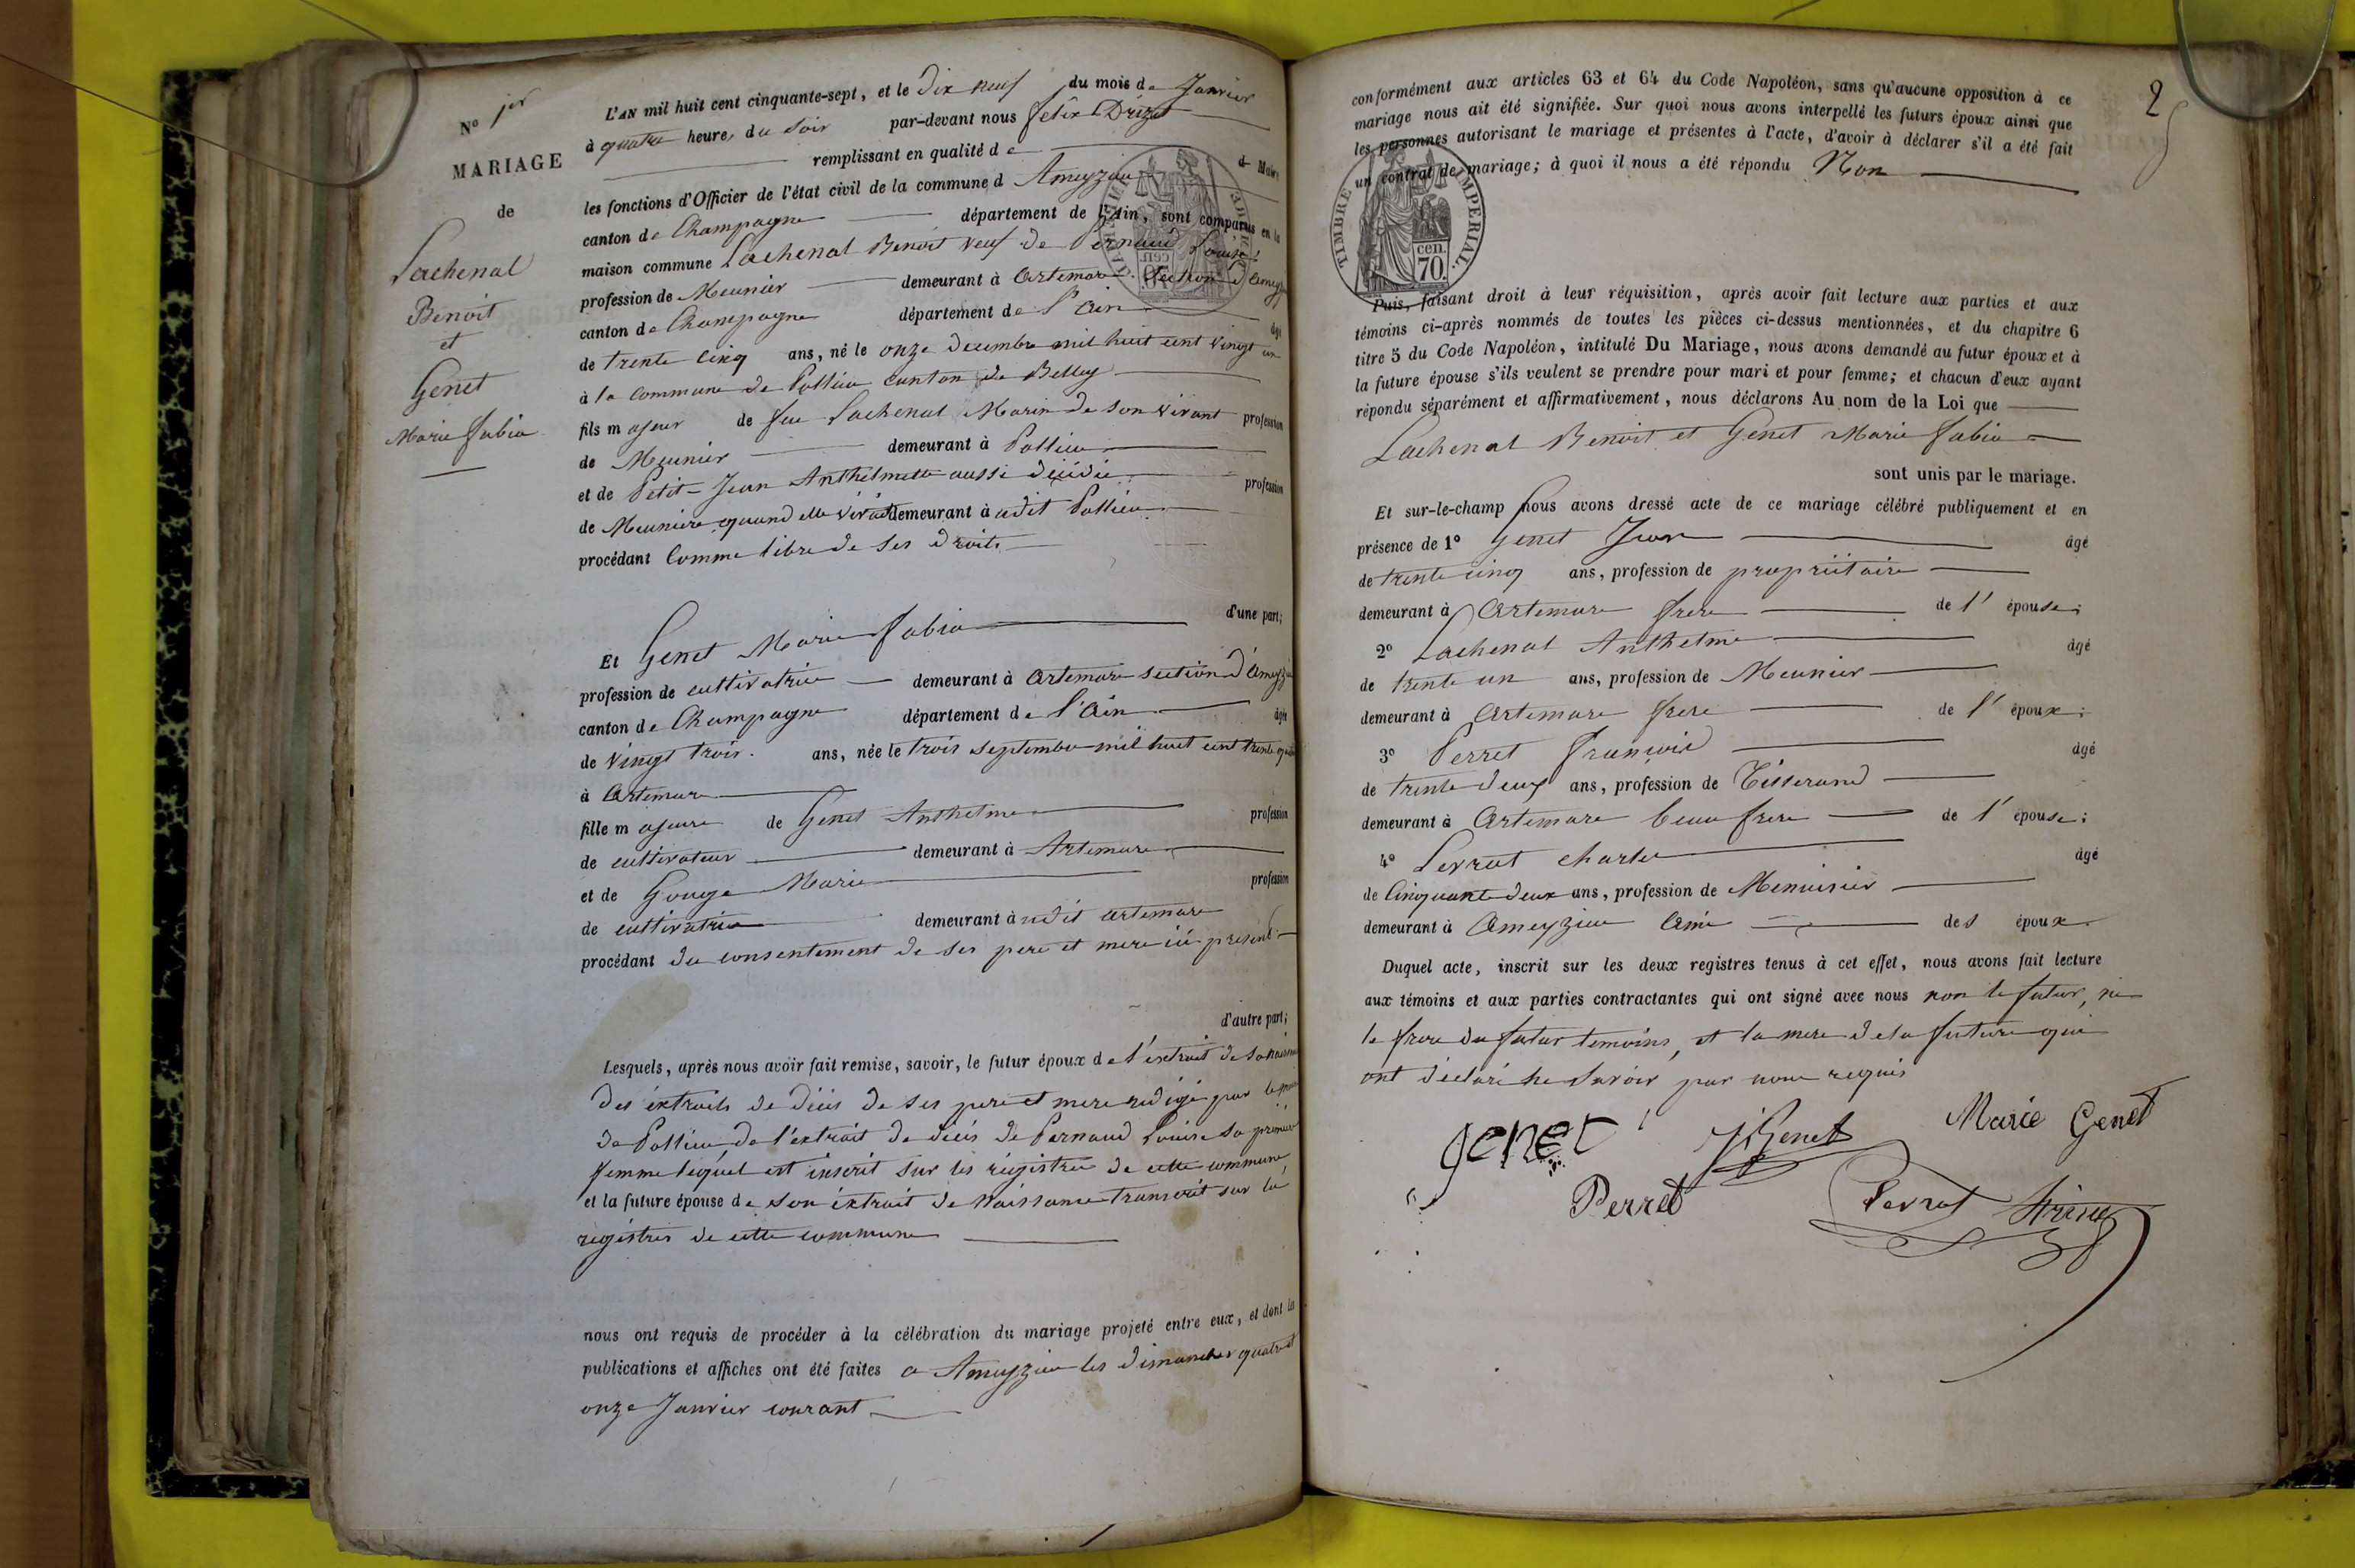 No 1er
MARIAGE
de
Lachenal
Benoit
et
Genet
Marie fabia
L'AN mil huit cent cinquante-sept, et le Dix neuf du mois de Janvier
à quatre heures du Soir par-devant nous felix Drizet
remplissant en qualité de d Maire
les fonctions d'Officier de l'état civil de la commune d Ameyzieu
canton de Champagne département de l'Ain, sont comparus en la
maison commune Lachenal Benoit veuf de Pernaud Louise
profession de Meunier demeurant à Artemare Section d'Ameyz
canton de Champagne département de l'Ain âgé
de trente cinq ans, né le onze decembre mil huit cent vingt un
à la commune de Pollieu canton de Belley
fils majeur de feu Lachenal Marin de son vivant profession
de Meunier demeurant à Pollieu
et de Petit-Jean Anthelmette aussi décédée profession
de Meunière quand elle vivait demeurant à udit Pollieu
procédant comme libre de ses droits
d'une part;
Et Genet Marie fabia
profession de cultivatrice demeurant à Artemare section d'Ameyzi
canton de Champagne département de l'Ain âgée
de vingt trois ans, née le trois septembre mil huit cent trente
à Artemare
fille majeure de Genet Anthelme profession
de cultivateur demeurant à Artemare
et de Gouge Marie profession
de cultivatrice demeurant à udit artemare
procédant du consentement de ses pere et mere ici présents
d'autre part;
Lesquels, après nous avoir fait remise, savoir, le futur époux de l'extrait de sa naissance
des extraits de décès de ses pere et mere redigé par le
de Pollieu de l'extrait de décès de Pernaud Louise sa premiere
femme lequel est inscrit sur les régistres de cette commune,
et la future épouse de son extrait de Naissance transcrit sur la
régistres de cette commune
nous ont requis de procéder à la célébration du mariage projeté entre eux, et dont les
publications et affiches ont été faites a Ameyzieu les dimanches quatre et
onze Janvier courant
2
conformément aux articles 63 et 64 du Code Napoléon, sans qu'aucune opposition à ce
mariage nous ait été signifiée. Sur quoi nous avons interpellé les futurs époux ainsi que
les personnes autorisant le mariage et présentes à l'acte, d'avoir à déclarer s'il a été fait
un contrat de mariage; à quoi il nous a été répondu Non
TIMBRE IMPERIAL
70 cen.
Puis, faisant droit à leur réquisition, après avoir fait lecture aux parties et aux
témoins ci-après nommés de toutes les pièces ci-dessus mentionnées, et du chapitre 6
titre 5 du Code Napoléon, intitulé Du Mariage, nous avons demandé au futur époux et à
la future épouse s'ils veulent se prendre pour mari et pour femme; et chacun d'eux ayant
répondu séparément et affirmativement, nous déclarons Au nom de la Loi que
Lachenal Benoit et Genet Marie fabia
sont unis par le mariage.
Et sur-le-champ nous avons dressé acte de ce mariage célébré publiquement et en
présence de 1° Genet Jean âgé
de trente cinq ans, profession de propriétaire
demeurant à Artemare frere de l' épouse;
2° Lachenal Anthelme âgé
de trente un ans, profession de Meunier
demeurant à Artemare frere de l' époux;
3° Perret françois âgé
de trente deux ans, profession de Tisserand
demeurant à Artemare beau frere de l' épouse;
4° Perrat charles âgé
de Cinquante deux ans, profession de Menuisier
demeurant à Ameyzieu Ami des époux.
Duquel acte, inscrit sur les deux registres tenus à cet effet, nous avons fait lecture
aux témoins et aux parties contractantes qui ont signé avec nous non le futur, ni
le frere du futur temoins, et la mere de la future qui
ont déclaré ne savoir par nous requis
Genet J Genet Marie Genet
Perret Perrat